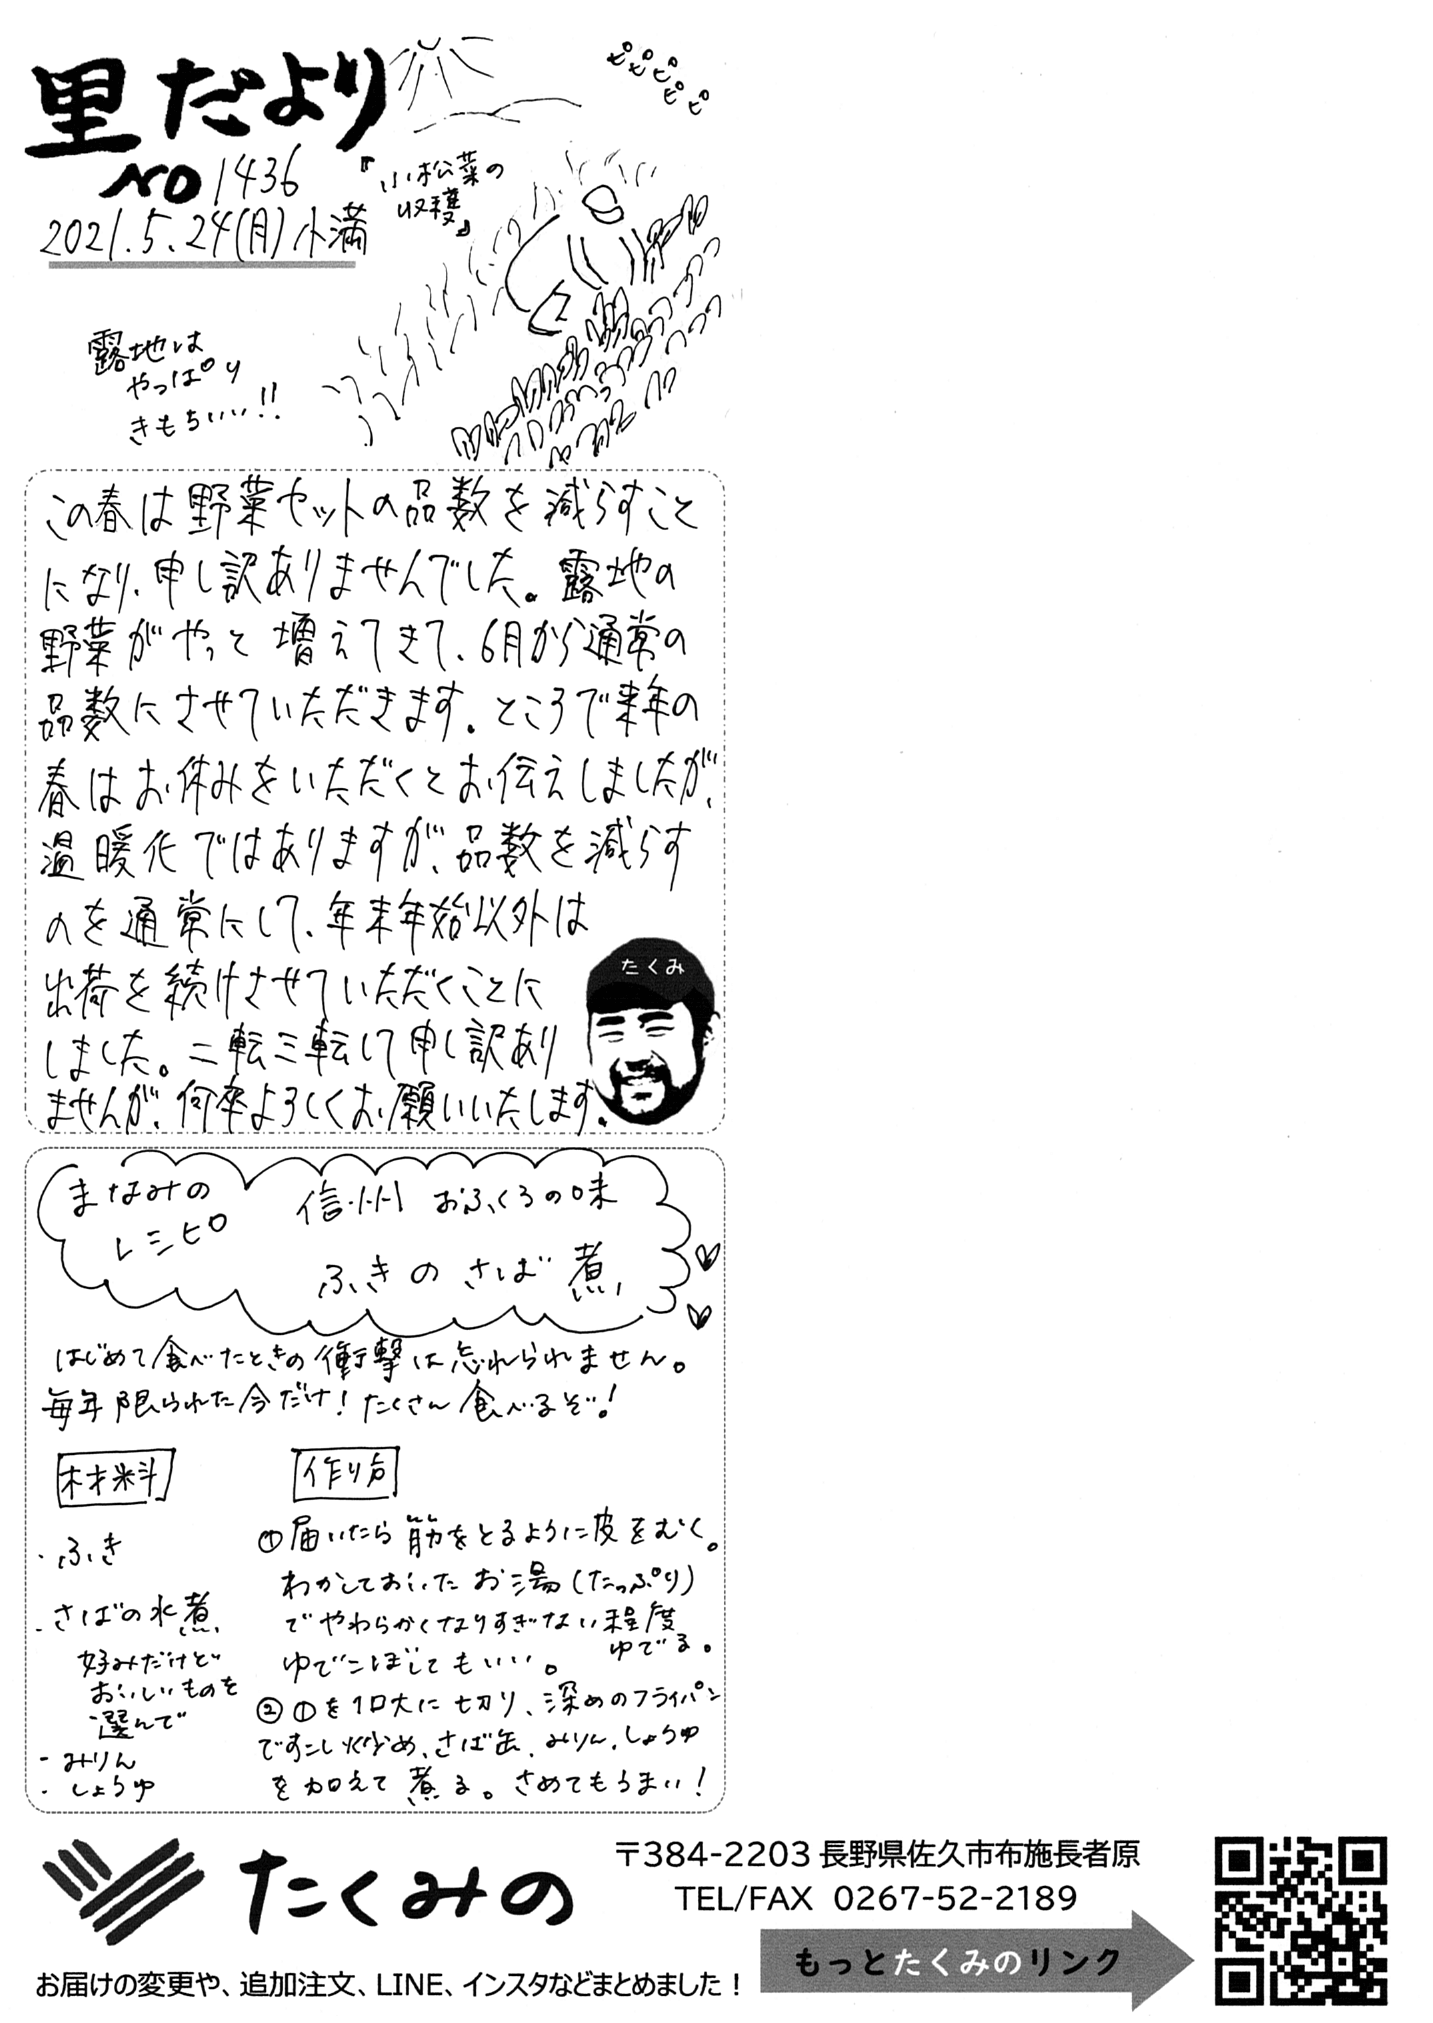 里だより
NO 1436
2021.5.24(月)小満
『小松菜の
収穫』
ピピピピピ
露地は
やっぱり
きもちいい!!
この春は野菜セットの品数を減らすこと
になり、申し訳ありませんでした。露地の
野菜がやっと増えてきて、6月から通常の
品数にさせていただきます。ところで来年の
春はお休みをいただくとお伝えしましたが、
温暖化ではありますが、品数を減らす
のを通常にして、年末年始以外は
出荷を続けさせていただくことに
しました。二転三転して申し訳あり
ませんが、何卒よろしくお願いいたします。
たくみ
まなみの
レシピ
信州おふくろの味
ふきのさば煮
はじめて食べたときの衝撃は忘れられません。
毎年限られた今だけ!たくさん食べるぞ!
材料
・ふき
・さばの水煮
好みだけど
おいしいものを
選んで
・みりん
・しょうゆ
作り方
①届いたら筋をとるように皮をむく。
わかしておいたお湯(たっぷり)
でやわらかくなりすぎない程度
ゆでる。
ゆでこぼしてもいい。
②①を1口大に切り、深めのフライパン
ですこし炒め、さば缶、みりん、しょうゆ
を加えて煮る。さめてもうまい!
たくみの
〒384-2203 長野県佐久市布施長者原
TEL/FAX 0267-52-2189
もっとたくみのリンク
お届けの変更や、追加注文、LINE、インスタなどまとめました!